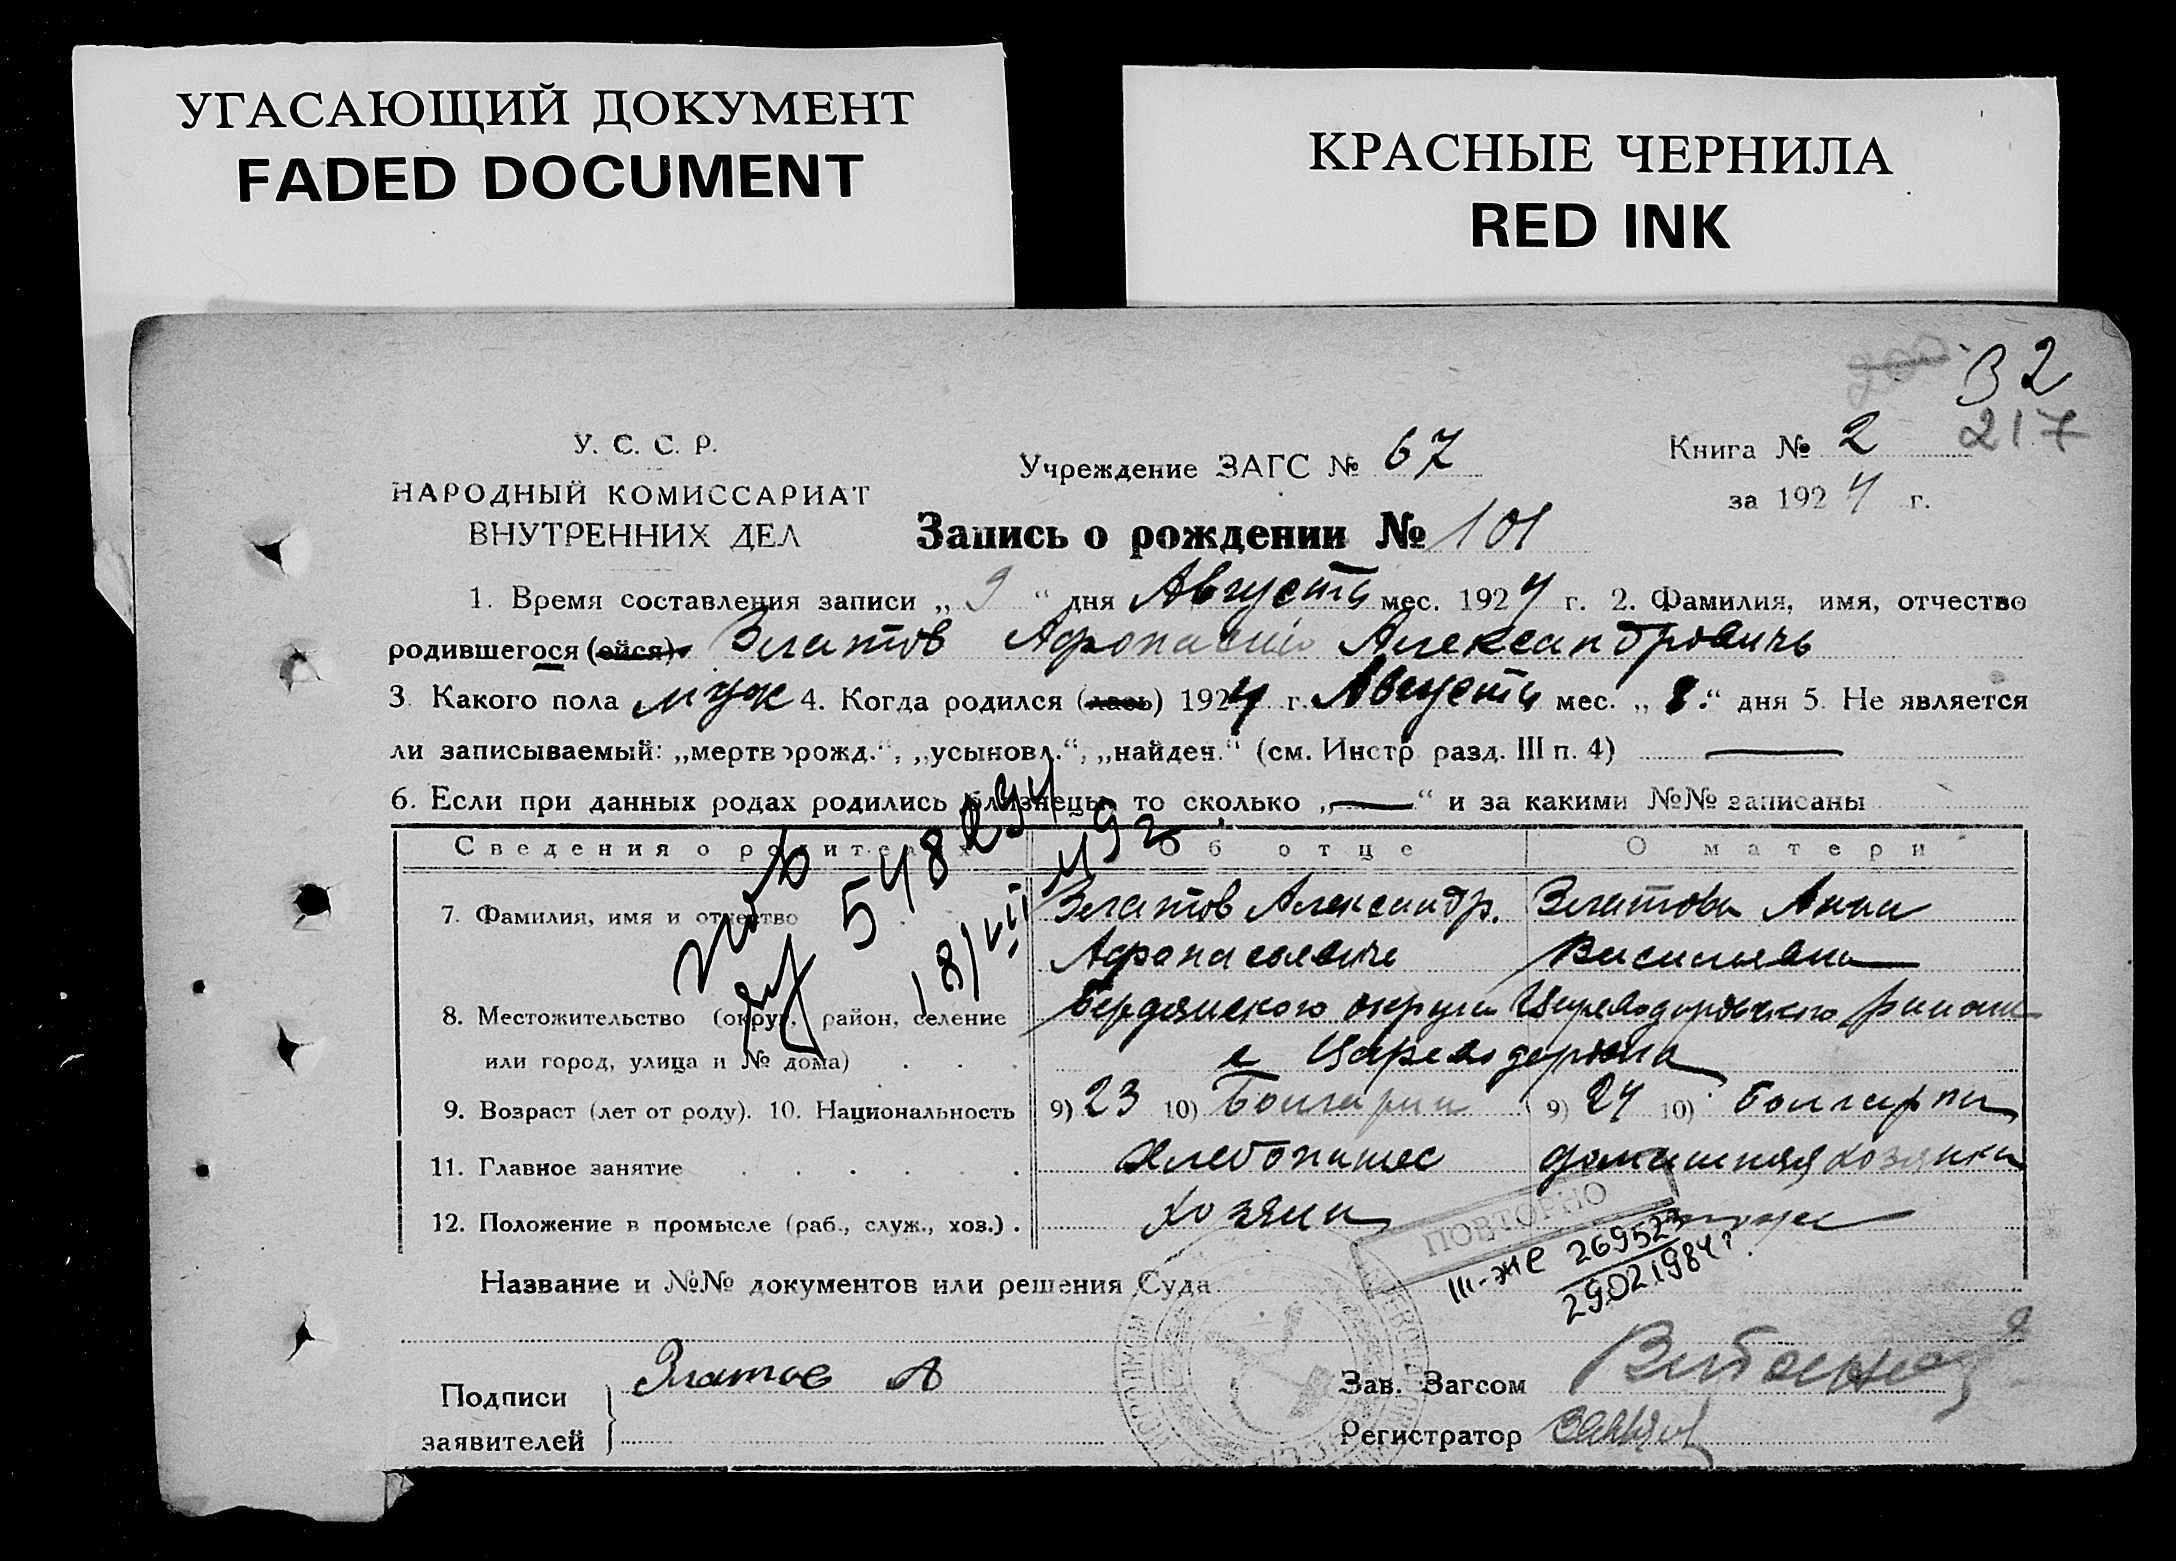 УГАСАЮЩИЙ ДОКУМЕНТ
FADED DOCUMENT
КРАСНЫЕ ЧЕРНИЛА
RED INK
32
217
У. С. С. Р.
НАРОДНЫЙ КОМИССАРИАТ
ВНУТРЕННИХ ДЕЛ
Учреждение ЗАГС № 67
Книга № 2
за 1924 г.
Запись о рождении № 101
1. Время составления записи „9“ дня Августа мес. 1924 г. 2. Фамилия, имя, отчество
родившегося (ейся) Златов Афонасий Александровичь
3. Какого пола муж 4. Когда родился (лась) 1924 г. Августа мес. „8.“ дня 5. Не является
ли записываемый: „мертворожд.“, „усыновл.“, „найден.“ (см. Инстр. разд. III п. 4) —
6. Если при данных родах родились близнецы, то сколько „—“ и за какими №№ записаны
Сведения о родителях Об отце О матери
7. Фамилия, имя и отчество Златов Александр. Златова Анна
Афонасиевич Васильевна
8. Местожительство (округ, район, селение Бердянского округа Цареводаровского района
или город, улица и № дома) . . . с Цареводаровка
9. Возраст (лет от роду). 10. Национальность 9) 23 10) Болгарин 9) 24 10) Болгарка
11. Главное занятие . . . . . Хлебопашес домашняя хозяика
12. Положение в промысле (раб., служ., хоз.) . хозяин
5482
18/VII
ПОВТОРНО
III-ЖС 269523
29.02.1984 г.
Название и №№ документов или решения Суда
Подписи заявителей Златов А
Зав. Загсом
Регистратор